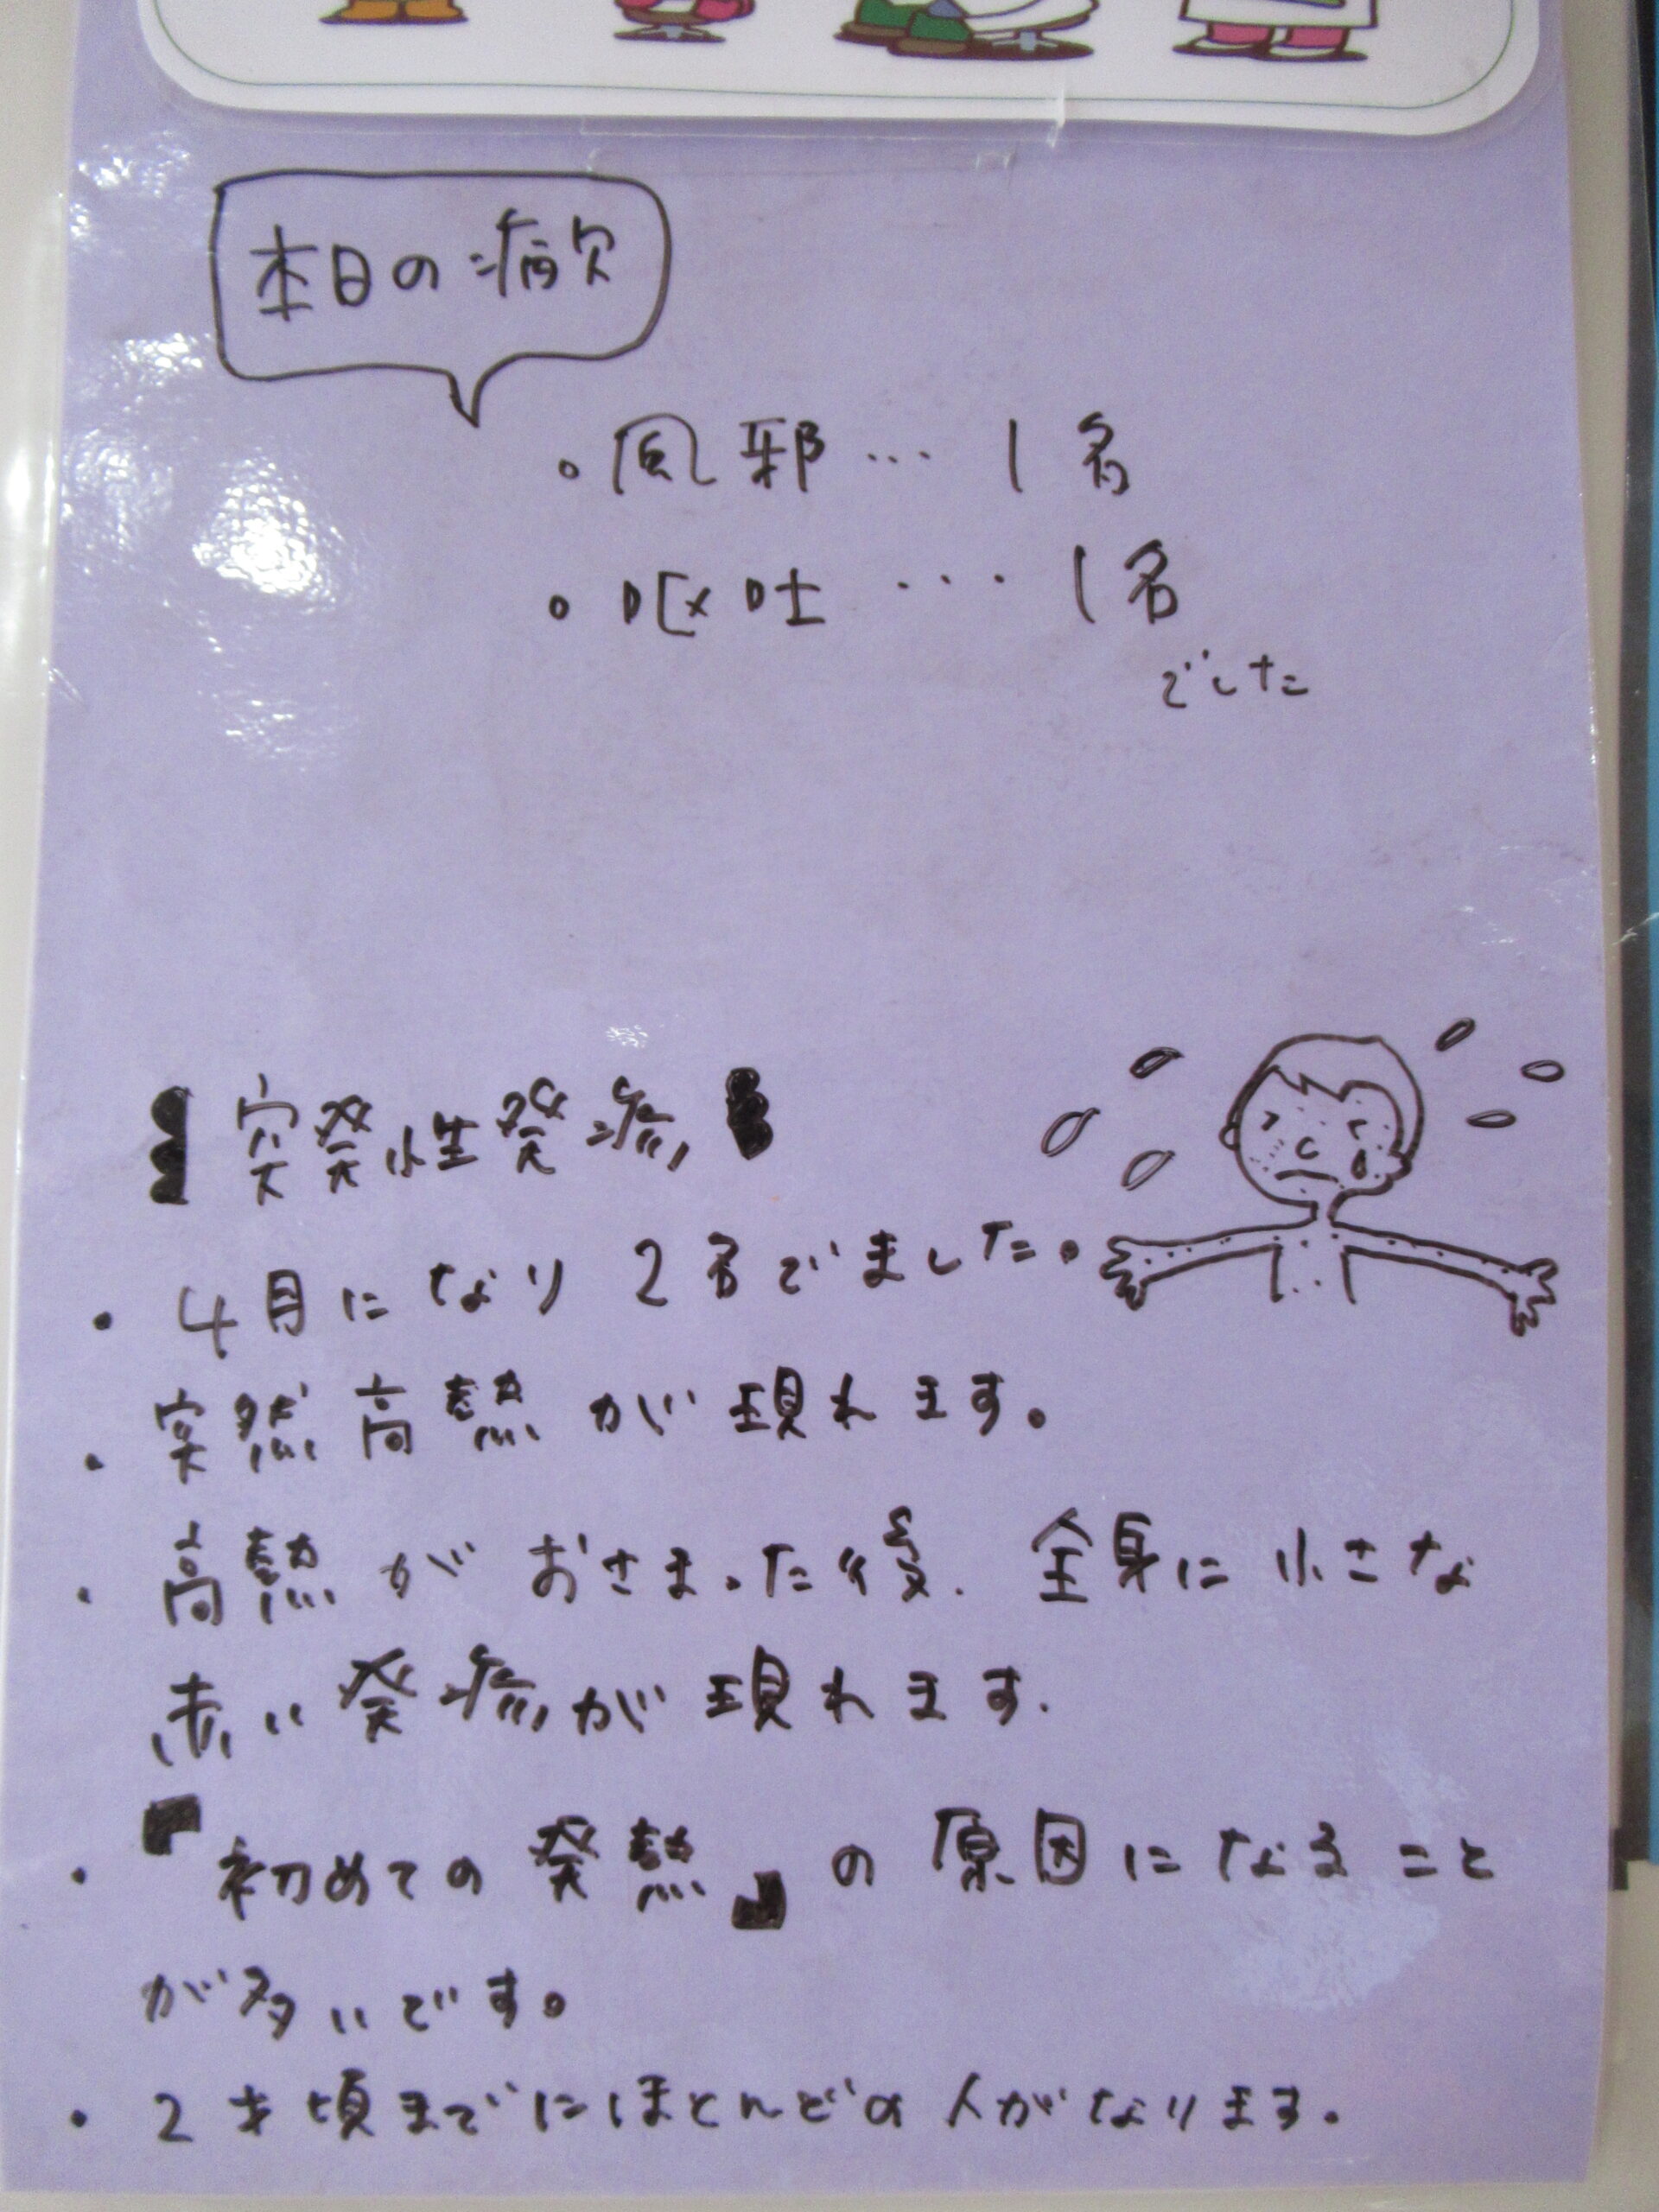 本日の病欠
。風邪… 1名
。嘔吐… 1名
でした
【突発性発疹】
・4月になり2名でました。
・突然高熱が現れます。
・高熱がおさまった後、全身に小さな
赤い発疹が現れます。
・『初めての発熱』の原因になること
が多いです。
・2才頃までにほとんどの人がなります。